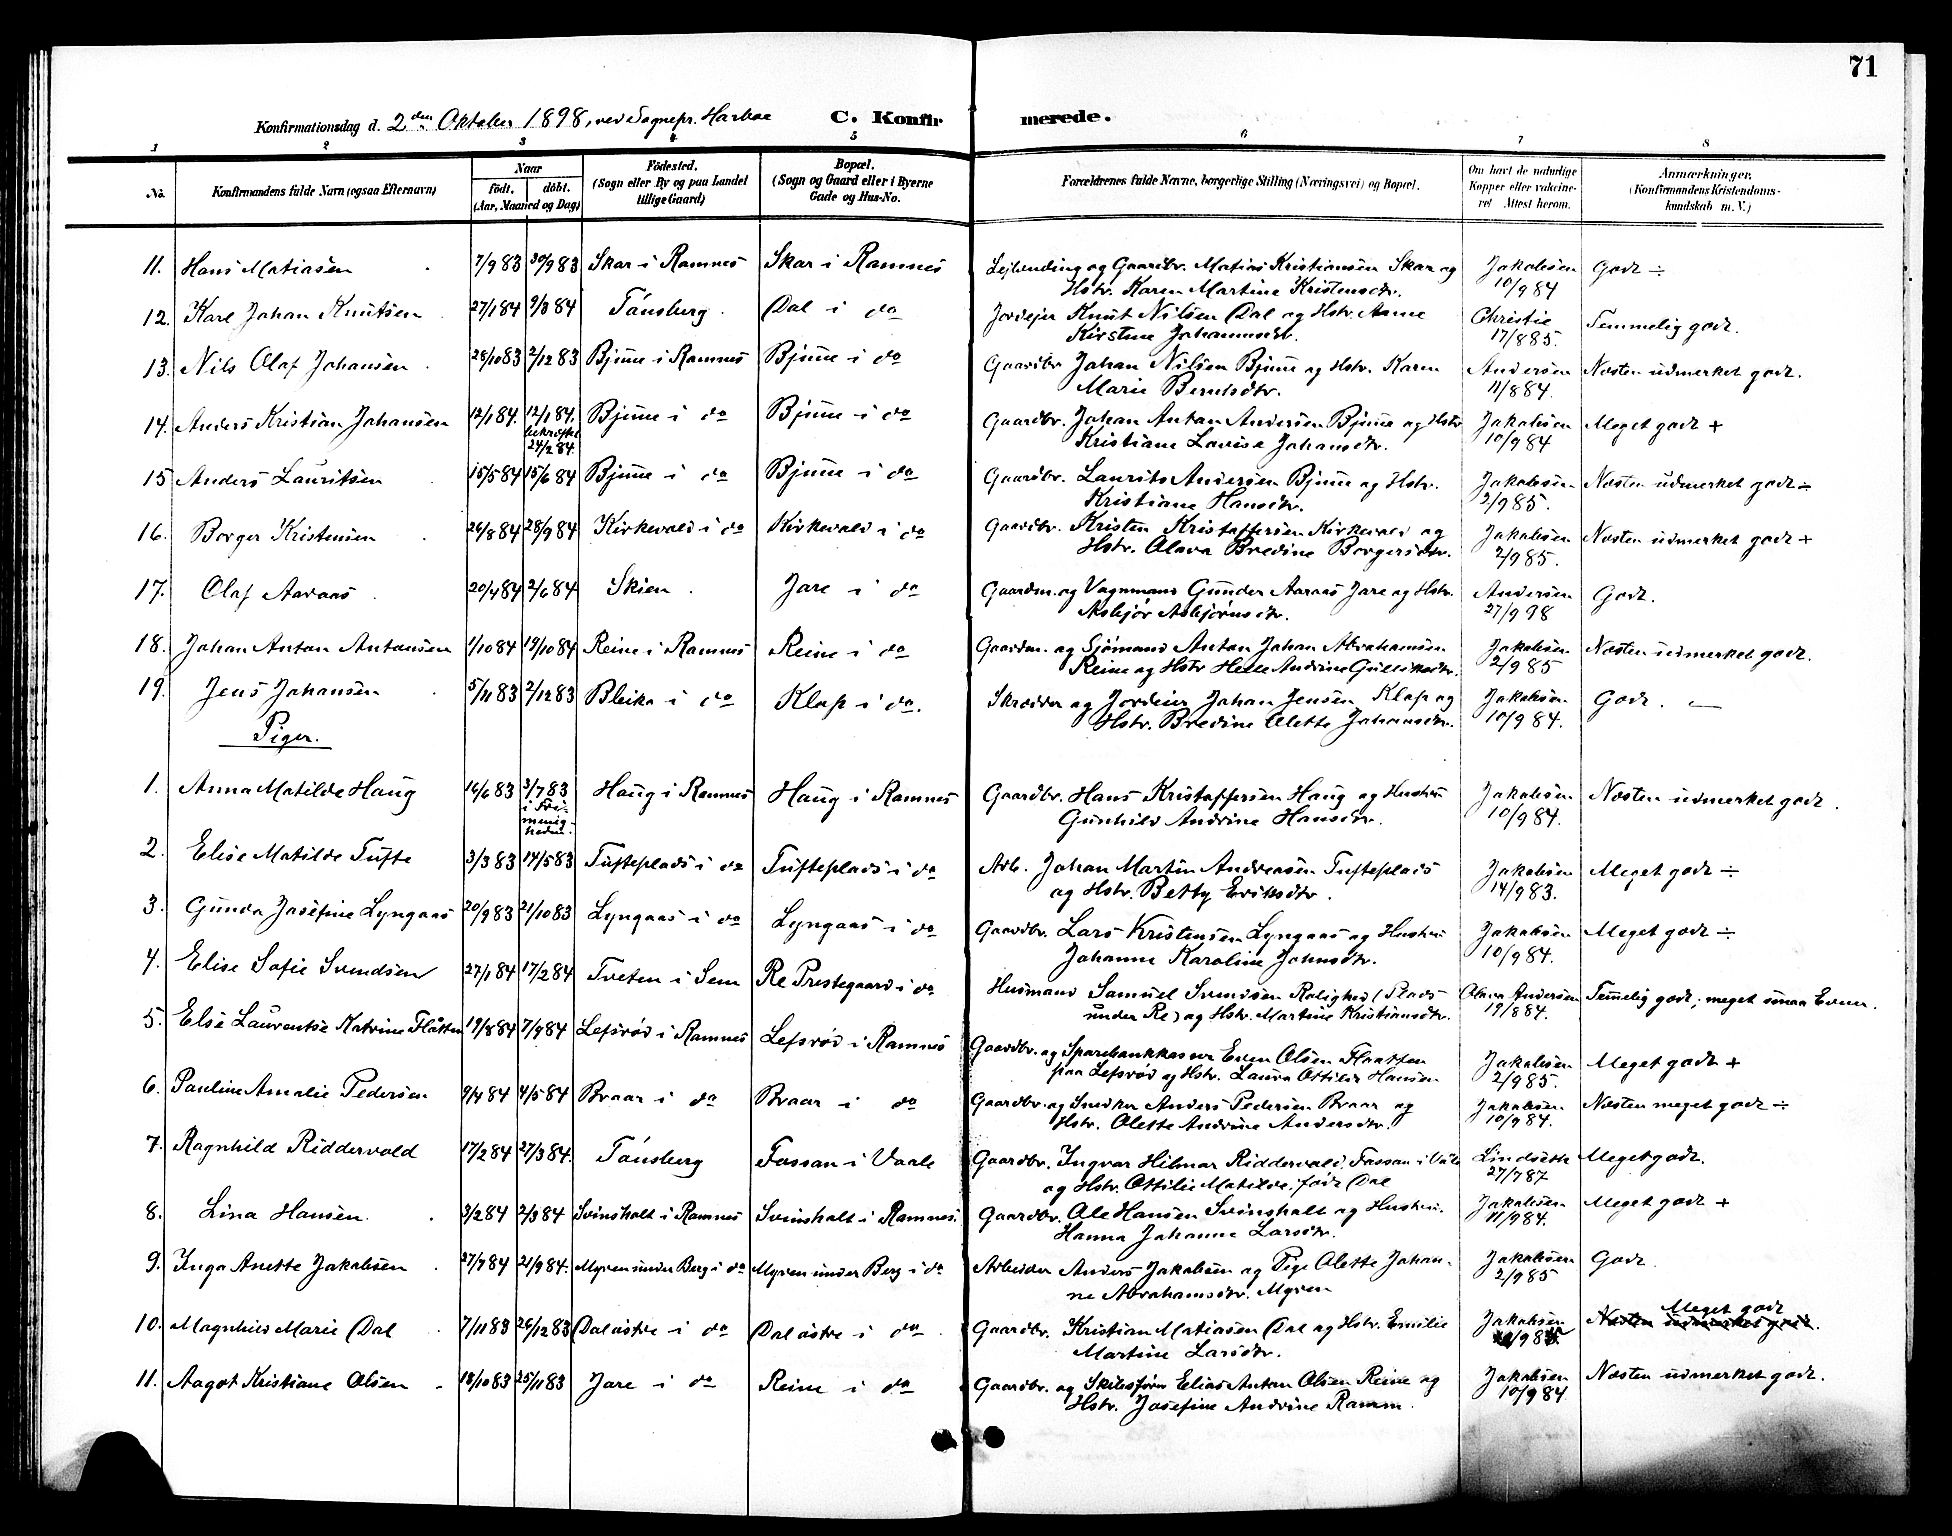 71
Konfirmationsdag d. 2den Oktober 1898, ved Sognepr. Harboe C. Konfirmerede.
1 2 3 4 5 6 7 8
No. Konfirmandens fulde Navn (ogsaa Efternavn) Naar født. døbt. (Aar, Maaned og Dag) Fødested. (Sogn eller By og paa Landet tillige Gaard) Bopæl. (Sogn og Gaard eller i Byerne Gade og Hus-No. Forældrenes fulde Navne, borgerlige Stilling (Næringsvei) og Bopæl. Om havt de naturlige Kopper eller vakcineret Attest herom. Anmærkninger. (Konfirmandens Kristendomskundskab m. V.)
11. Hans Matiasen 7/9 83 30/9 83 Skar i Ramnes Skar i Ramnes Lejlending og Gaardbr. Matias Kristiansen Skar og Jakobsen Godt ÷
Hstr. Karen Martine Kristensdtr. 10/9 84
12. Karl Johan Knutsen 27/1 84 9/3 84 Tønsberg Dal i do Jordejer Knut Nilsen Dal og Hstr. Anne Christie Temmelig godt.
Kirstine Johannesdtr. 17/8 85.
13. Nils Olaf Johansen 28/10 83 2/12 83 Bjune i Ramnes Bjune i do Gaardbr. Johan Nilsen Bjune og Hstr. Karen Andersen Næsten udmerket godt.
Marie Berntsdtr. 11/8 84.
14. Anders Kristian Johansen 12/1 84. 12/1 84. Bjune i do Bjune i do Gaardbr. Johan Anton Andersen Bjune og Hstr Jakobsen Meget godt +
bekræftet 24/2 84. Kristiane Lovise Johansdtr. 10/9 84
15 Anders Lauritsen 15/5 84 15/6 84 Bjune i do Bjune i do Gaardbr. Laurits Andersen Bjune og Hstr. Jakobsen Næsten udmerket godt ÷
Kristiane Hansdtr. 2/9 85.
16. Borger Kristensen 26/8 84 28/9 84 Kirkevold i do Kirkevold i do Gaardbr. Kristen Kristoffersen Kirkevold og Jakobsen Næsten udmerket godt +
Hstr. Olava Bredine Borgersdtr. 2/9 85.
17. Olaf Aaraas 20/4 84 2/6 84 Skien Jare i do Gaardm. og Vognmand Gunder Aaraas Jare og Hstr. Andersen Godt.
Asbjør Asbjørnsdtr. 27/9 98
18. Johan Anton Antonsen 1/10 84 19/10 84 Reine i Ramnes Reine i do Gaardm. og Sjømand Anton Johan Abrahamsen Jakobsen Næsten udmerket godt.
Reine og Hstr Helle Andrine Gulliksdtr. 2/9 85
19. Jens Johansen 5/11 83 2/12 83 Bleika i do Klop i do. Skrædder og Jordeier Johan Jensen Klop og Jakobsen Godt. —
Hstr. Bredine Olette Johansdtr. 10/9 84.
Piger.
1. Anna Matilde Haug 16/6 83 3/7 83 Haug i Ramnes Haug i Ramnes Gaardbr. Hans Kristoffersen Haug og Hustru Jakobsen Næsten udmerket godt.
i Frimenigheden. Gunhild Andrine Hansdtr. 10/9 84.
2. Elise Matilde Tufte 3/3 83 14/5 83 Tufteplads i do Tufteplads i do Arb. Johan Martin Andreasen Tufteplads Jakobsen Meget godt ÷
og Hstr. Betty Eriksdtr. 14/9 83.
3. Gunda Josefine Lyngaas 20/9 83 21/10 83 Lyngaas i do Lyngaas i do Gaardbr. Lars Kristensen Lyngaas og Hustru Jakobsen Meget godt ÷
Johanne Karoline Johnsdtr. 10/9 84.
4. Elise Sofie Svendsen 27/1 84 17/2 84 Tveten i Sem Re Prestegaard i do Husmand Samuel Svendsen Rolighed (Plads Olava Andersen Temelig godt; meget smaa Evner.
under Re) og Hstr. Martine Kristiansdtr. 17/8 84.
5. Else Laurentse Katrine Flåtten 19/8 84 7/9 84 Lefsrød i Ramnes Lefsrød i Ramnes Gaardbr. og Sparebankkasser Even Olsen Flaatten Jakobsen Meget godt +
paa Lefsrød og Hstr. Laura Ottilde Hansen 2/9 85.
6. Pauline Amalie Pedersen 9/4 84 4/5 84 Braar i do Braar i do Gaardbr. og Snedker Anders Pedersen Braar og Jakobsen Næsten meget godt ÷
Hstr. Olette Andrine Andersdtr. 10/9 84.
7. Ragnhild Riddervold 17/2 84 27/3 84. Tønsberg Fossan i Vaale Gaardbr. Ingvar Hilmar Riddervold, Fossan i Våle Lindseth Meget godt.
og Hstr. Ottilie Matilde, født Dal 27/7 87
8. Lina Hansen 3/2 84 2/3 84 Svinsholt i Ramnes Svinsholt i Ramnes. Gaardbr. Ole Hansen Svinsholt og Hustru. Jakobsen Meget godt +
Hanna Johanne Larsdtr. 11/9 84.
9. Inga Anette Jakobsen 27/7 84 21/9 84. Myren under Berg i do Myren under Berg i do Arbeider Anders Jakobsen og Pige Olette Johan- Jakobsen Godt.
ne Abrahamsdtr. Myren 2/9 85
10. Magnhild Marie Dal 7/11 83 26/12 83 Dal østre i do Dal østre i do. Gaardbr. Kristian Matiasen Dal og Hstr. Emilie Jakobsen Meget godt Næsten udmerket godt.
Martine Larsdtr.
11. Aagot Kristiane Olsen 18/10 83 25/11 83 Jare i do Reine i do Gaardbr. og Skibsfører Elias Anton Olsen Reine og Jakobsen Næsten udmerket godt.
Hstr. Josefine Andrine Ramm. 10/9 84